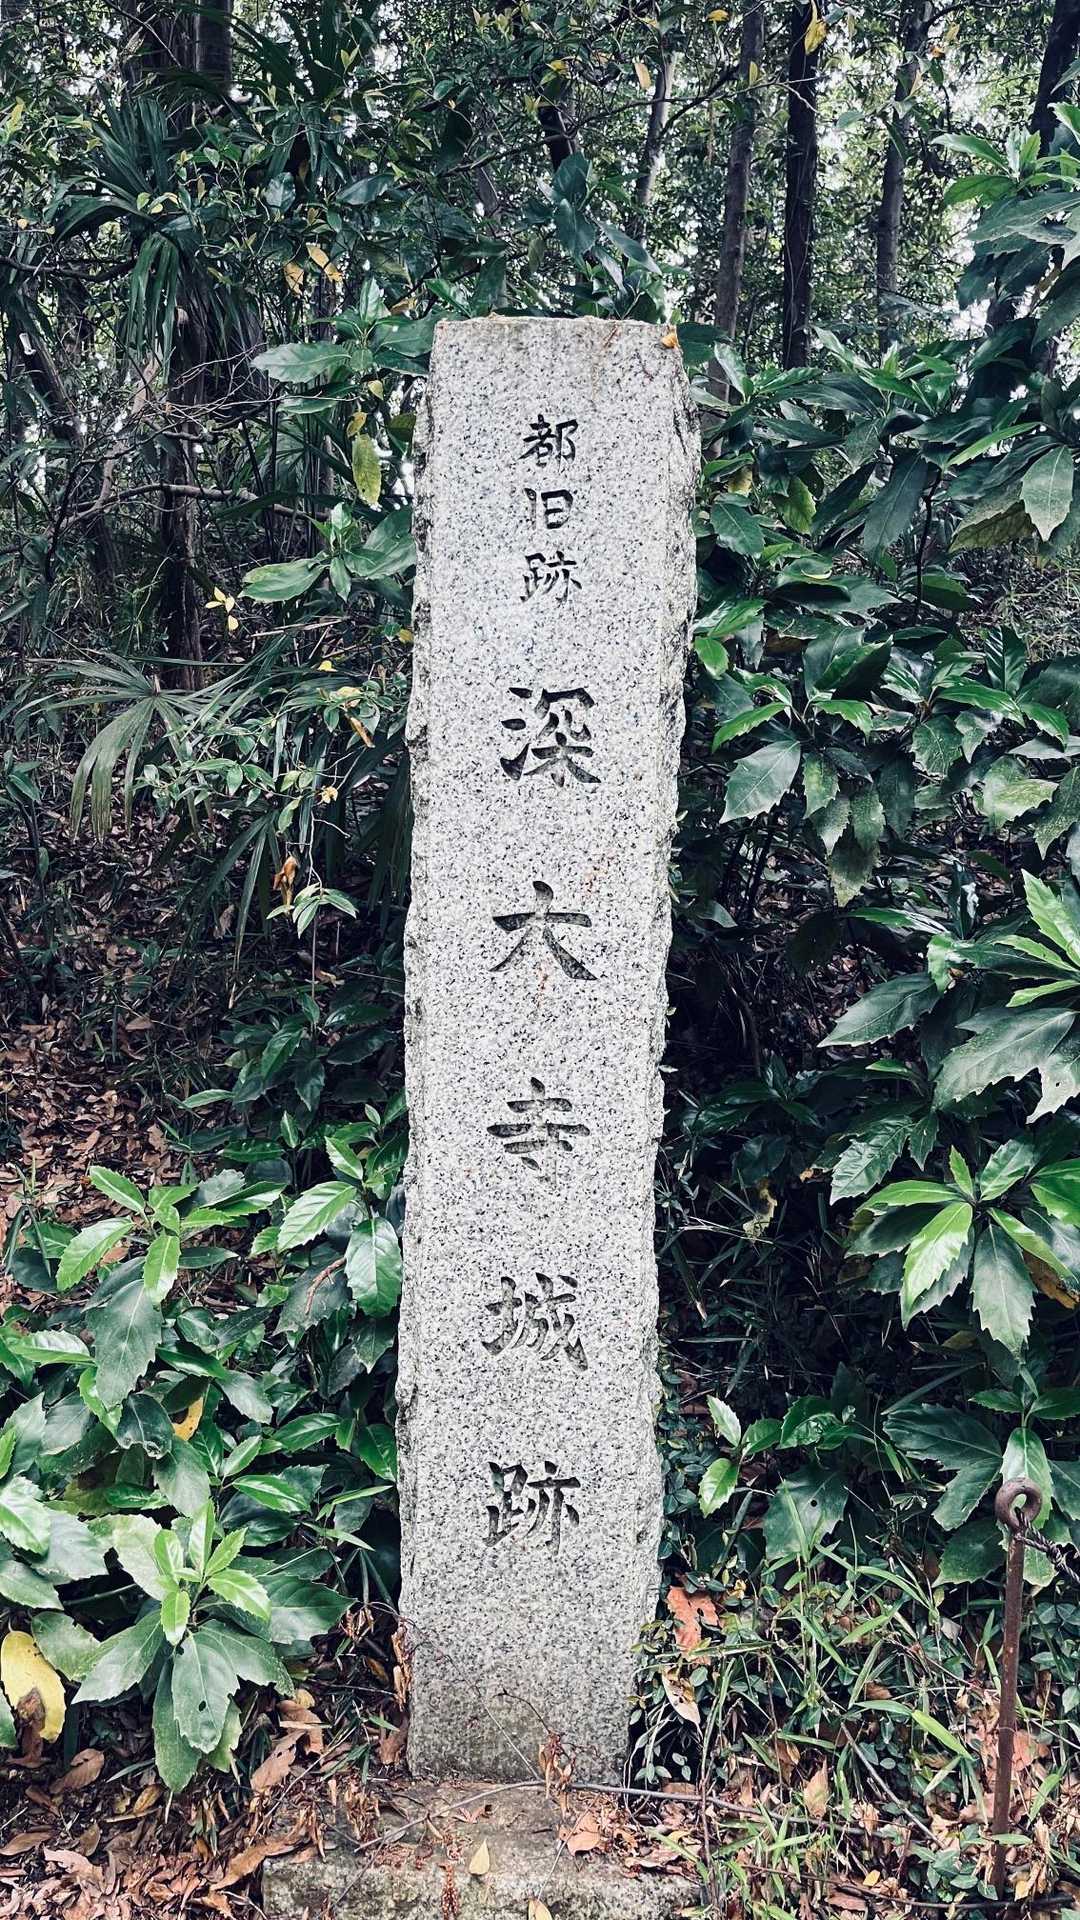 都旧跡深大寺城跡